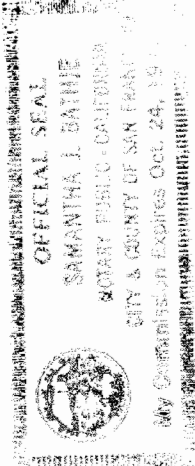 OFFICIAL SEAL
SAMANTHA J. BATHE
NOTARY PUBLIC - CALIFORNIA
CITY & COUNTY OF SAN FRANC
My Commission Expires Oct. 24, 19